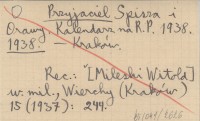 O Przyjaciel Spisza i
Orawy. Kalendarz na R.P. 1938.
1938. — Kraków.
Rec.: "[Mileski Witold]
w: mil, Wierchy (Kraków)
15 (1937): 244.